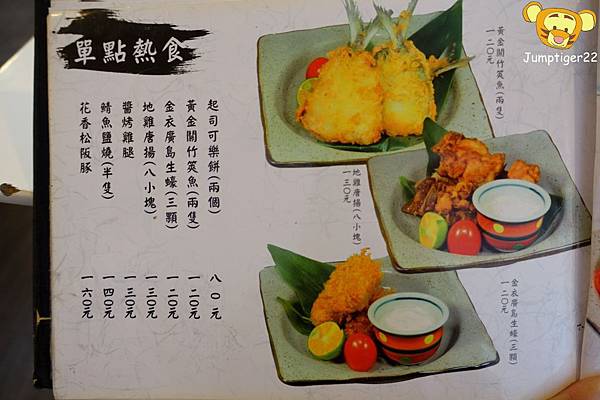 單點熱食
起司可樂餅(兩個) 八０元
黃金關竹筴魚(兩隻) 一二０元
金衣廣島生蠔(三顆) 一二０元
地雞唐揚(八小塊)。 一三０元
醬烤雞腿 一三０元
鯖魚鹽燒(半隻) 一四０元
花香松阪豚 一六０元
黃金關竹筴魚(兩隻)
一二０元
地雞唐揚(八小塊)
一三０元
金衣廣島生蠔(三顆)
一二０元
Jumptiger22